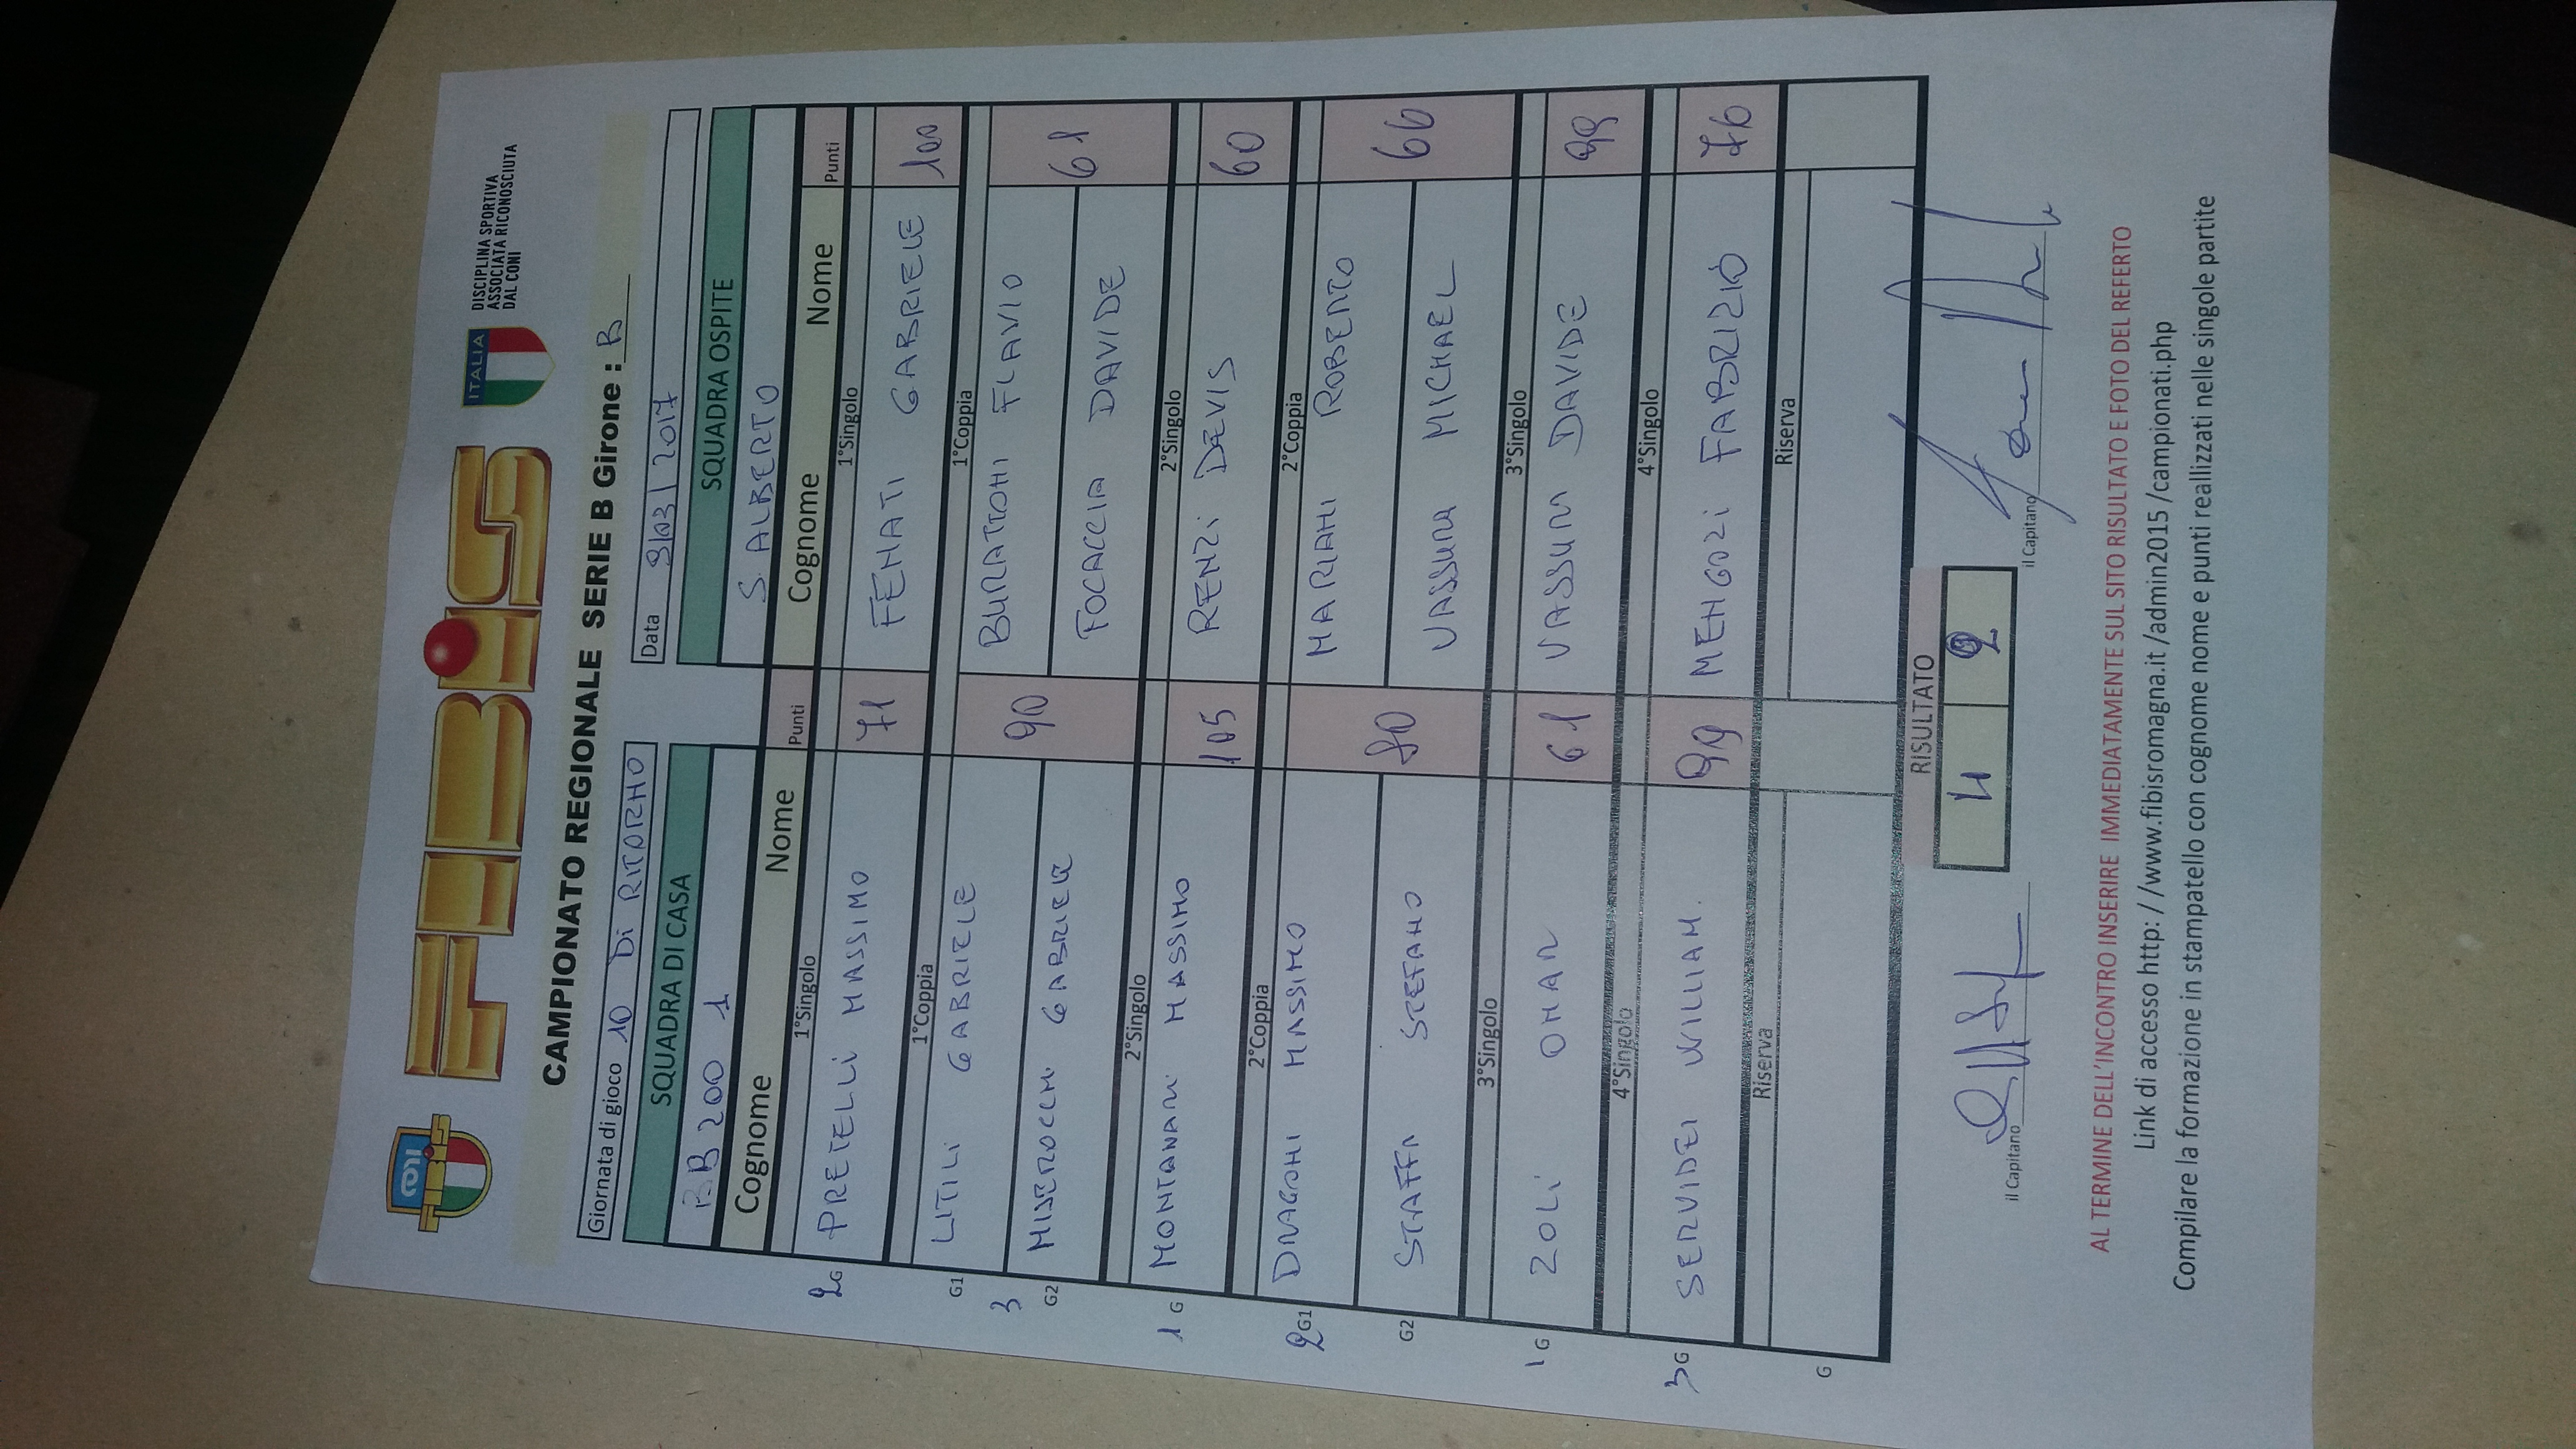 CONI
FIBiS
ITALIA
DISCIPLINA SPORTIVA
ASSOCIATA RICONOSCIUTA
DAL CONI
CAMPIONATO REGIONALE SERIE B Girone : B
Giornata di gioco 10 Di RITORNO
Data 9/03/2017
SQUADRA DI CASA SQUADRA OSPITE
BB 200 1 S. ALBERTO
Cognome Nome Punti Cognome Nome Punti
1°Singolo 1°Singolo
2 G PRETELLI MASSIMO 71 FENATI GABRIELE 100
1°Coppia 1°Coppia
G1 LITILI GABRIELE 90 BURATTONI FLAVIO 61
3
G2 MISEROCCHI GABRIELE FOCACCIA DAVIDE
2°Singolo 2°Singolo
1 G MONTANARI MASSIMO 105 RENZI DEVIS 60
2°Coppia 2°Coppia
2 G1 DRAGONI MASSIMO 80 MARIANI ROBERTO 66
G2 STAFFA STEFANO VASSURA MICHAEL
3°Singolo 3°Singolo
1 G ZOLI OMAR 61 VASSURA DAVIDE 99
4°Singolo 4°Singolo
3 G SERVIDEI WILLIAM. 99 MENGOZI FABRIZIO 76
Riserva Riserva
G
RISULTATO
4 2
il Capitano il Capitano
AL TERMINE DELL'INCONTRO INSERIRE IMMEDIATAMENTE SUL SITO RISULTATO E FOTO DEL REFERTO
Link di accesso http: //www.fibisromagna.it /admin2015 /campionati.php
Compilare la formazione in stampatello con cognome nome e punti reallizzati nelle singole partite